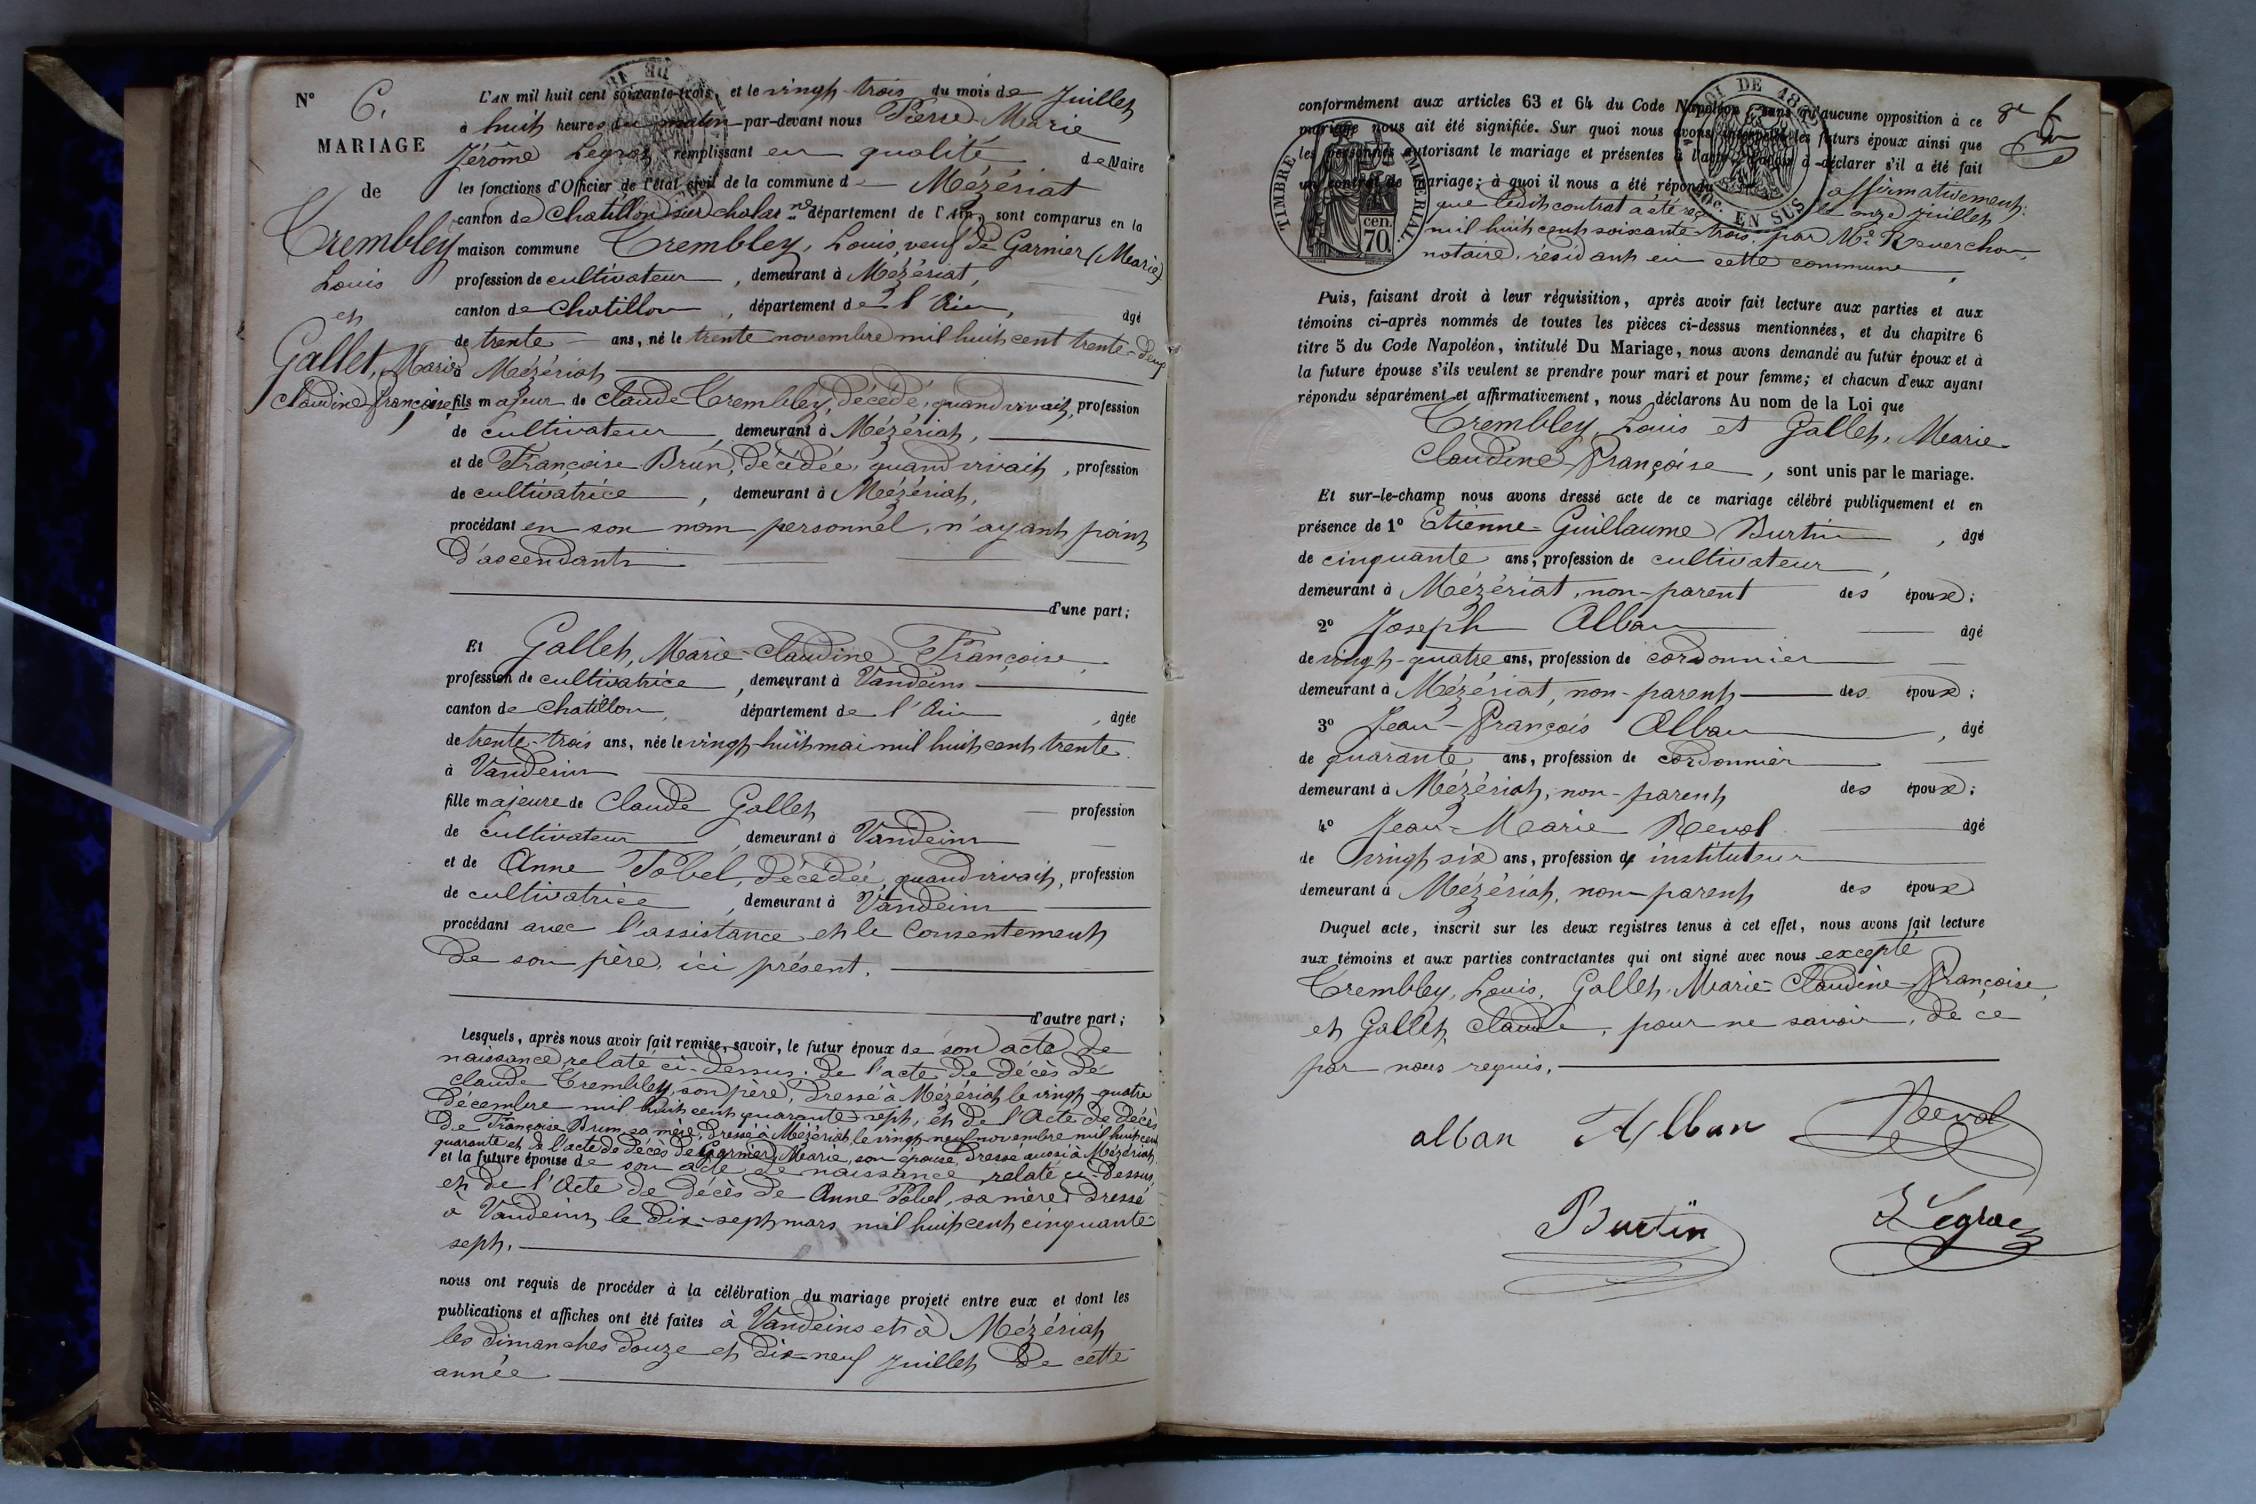 N° 6.
MARIAGE
de
Trembley
Louis
et
Gallet, Marie
Claudine Françoise
L'AN mil huit cent soixante-trois, et le vingt-trois du mois de Juillet
à huit heures du matin par-devant nous Pierre Marie
Jérôme Legras remplissant en qualité de Maire
les fonctions d'Officier de l'état civil de la commune de Mézériat
canton de Chatillon sur chalar.ne département de l'Ain, sont comparus en la
maison commune Trembley, Louis, veuf de Garnier (Marie)
profession de cultivateur, demeurant à Mézériat,
canton de Chatillon, département de l'Ain, âgé
de trente ans, né le trente novembre mil huit cent trente-deux
à Mézériat
fils majeur de Claude Trembley, décédé, quand vivait, profession
de cultivateur, demeurant à Mézériat,
et de Françoise Brun, décédée, quand vivait, profession
de cultivatrice, demeurant à Mézériat,
procédant en son nom personnel, n'ayant point
d'ascendants
d'une part;
Et Gallet, Marie-Claudine Françoise,
profession de cultivatrice, demeurant à Vandeins
canton de Chatillon, département de l'Ain, âgée
de trente-trois ans, née le vingt-huit mai mil huit cent trente
à Vandeins
fille majeure de Claude Gallet profession
de cultivateur, demeurant à Vandeins
et de Anne Pobel, décédée, quand vivait, profession
de cultivatrice, demeurant à Vandeins
procédant avec l'assistance et le consentement
de son père, ici présent.
d'autre part;
Lesquels, après nous avoir fait remise, savoir, le futur époux de son acte de
naissance relaté ci-dessus, de l'acte de décès de
Claude Trembley, son père, dressé à Mézériat le vingt-quatre
décembre mil huit cent quarante sept, et de l'Acte de décès
de Françoise Brun, sa mère, dressé à Mézériat, le vingt neuf novembre mil huit cent
quarante et de l'acte de décès de Garnier, Marie, son épouse, dressé aussi à Mézériat.
et la future épouse de son acte de naissance, relaté ci-dessus,
et de l'Acte de décès de Anne Pobel, sa mère, dressé
à Vandeins, le dix-sept mars mil huit cent cinquante
sept.
nous ont requis de procéder à la célébration du mariage projeté entre eux et dont les
publications et affiches ont été faites à Vandeins et à Mézériat
les dimanches douze et dix-neuf Juillet de cette
année
conformément aux articles 63 et 64 du Code Napoléon, sans qu'aucune opposition à ce
mariage nous ait été signifiée. Sur quoi nous avons interpellé les futurs époux ainsi que
les personnes autorisant le mariage et présentes à l'acte, à déclarer s'il a été fait
un contrat de mariage; à quoi il nous a été répondu affirmativement:
que ledit contrat a été reçu le onze juillet
mil huit cent soixante-trois, par Me Reverchon,
notaire, résidant en cette commune,
TIMBRE IMPÉRIAL
cen.
70.
LOI DE 1862
EN SUS
Puis, faisant droit à leur réquisition, après avoir fait lecture aux parties et aux
témoins ci-après nommés de toutes les pièces ci-dessus mentionnées, et du chapitre 6
titre 5 du Code Napoléon, intitulé Du Mariage, nous avons demandé au futur époux et à
la future épouse s'ils veulent se prendre pour mari et pour femme; et chacun d'eux ayant
répondu séparément et affirmativement, nous déclarons Au nom de la Loi que
Trembley, Louis et Gallet, Marie-
Claudine-Françoise, sont unis par le mariage.
Et sur-le-champ nous avons dressé acte de ce mariage célébré publiquement et en
présence de 1° Etienne-Guillaume Burtin, âgé
de cinquante ans, profession de cultivateur,
demeurant à Mézériat, non-parent des époux;
2° Joseph Alban âgé
de vingt-quatre ans, profession de cordonnier
demeurant à Mézériat, non-parent des époux;
3° Jean-François Alban, âgé
de quarante ans, profession de cordonnier
demeurant à Mézériat, non-parent des époux;
4° Jean-Marie Revol âgé
de vingt six ans, profession de instituteur
demeurant à Mézériat, non-parent des époux
Duquel acte, inscrit sur les deux registres tenus à cet effet, nous avons fait lecture
aux témoins et aux parties contractantes qui ont signé avec nous excepté
Trembley, Louis, Gallet, Marie-Claudine-Françoise,
et Gallet, Claude, pour ne savoir, de ce
par nous requis.
alban Alban Revol
Burtin Legras